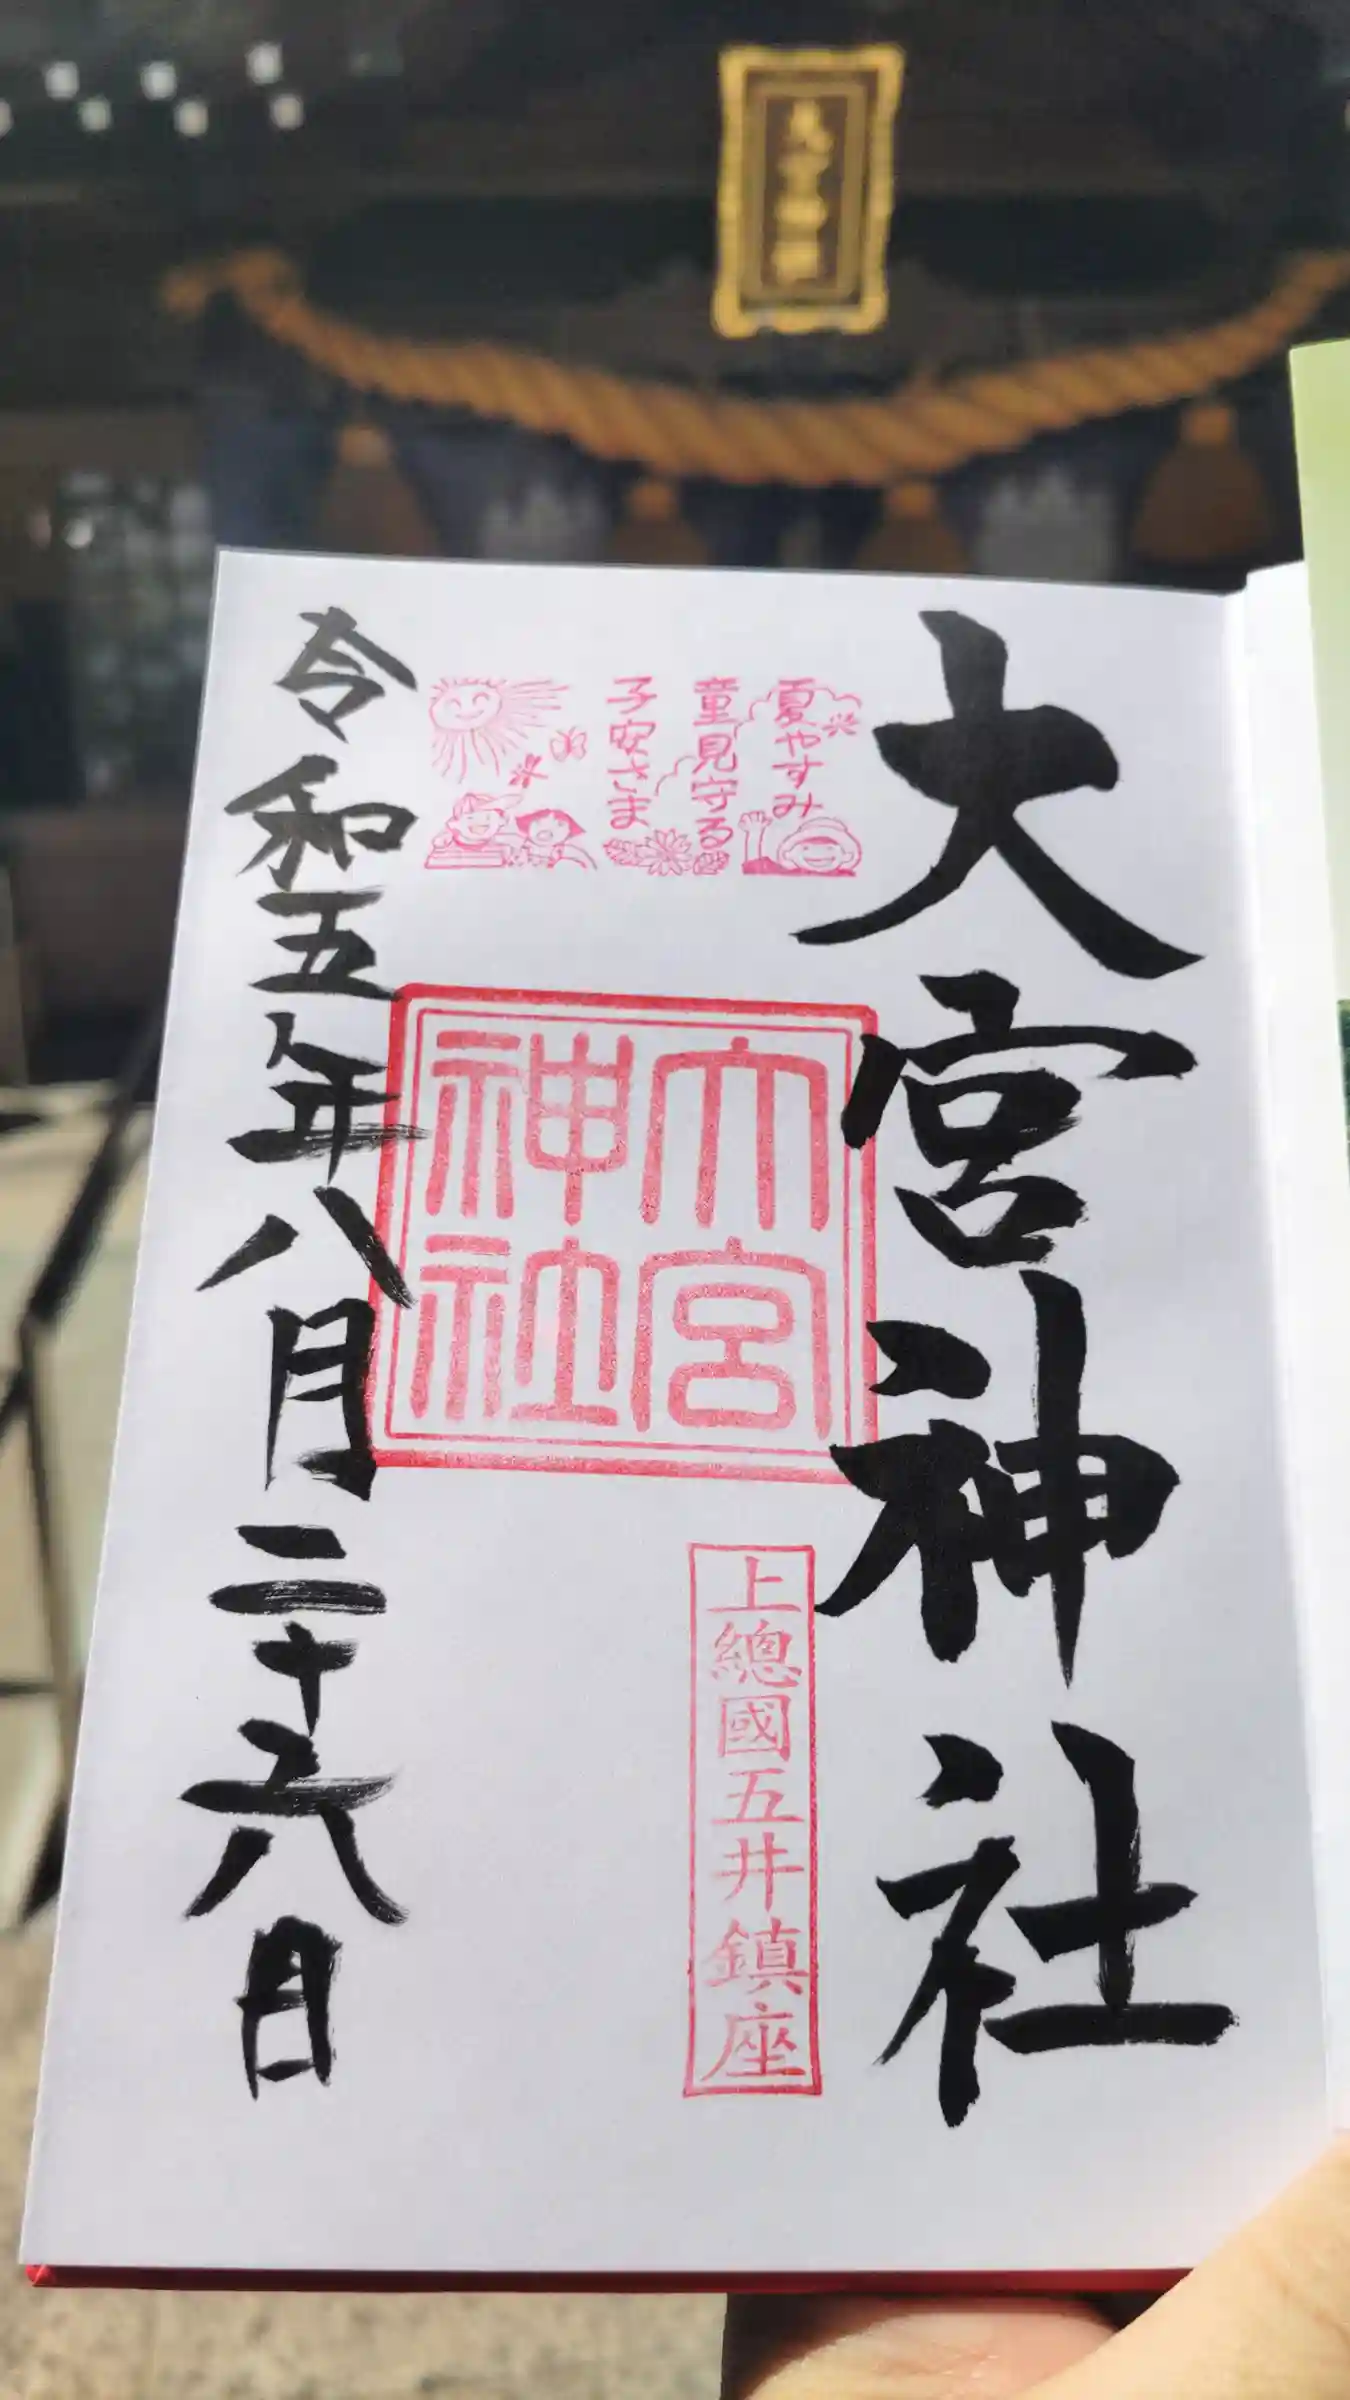 大宮神社
大宮神社
夏やすみ
童見守る
子安さま
大宮
神社
上總國五井鎮座
令和五年八月二十六日